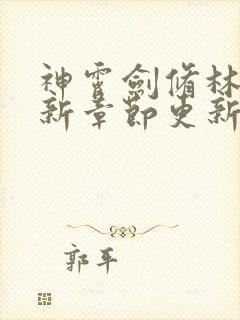 神霄劍脩林
新章節更新
郭平